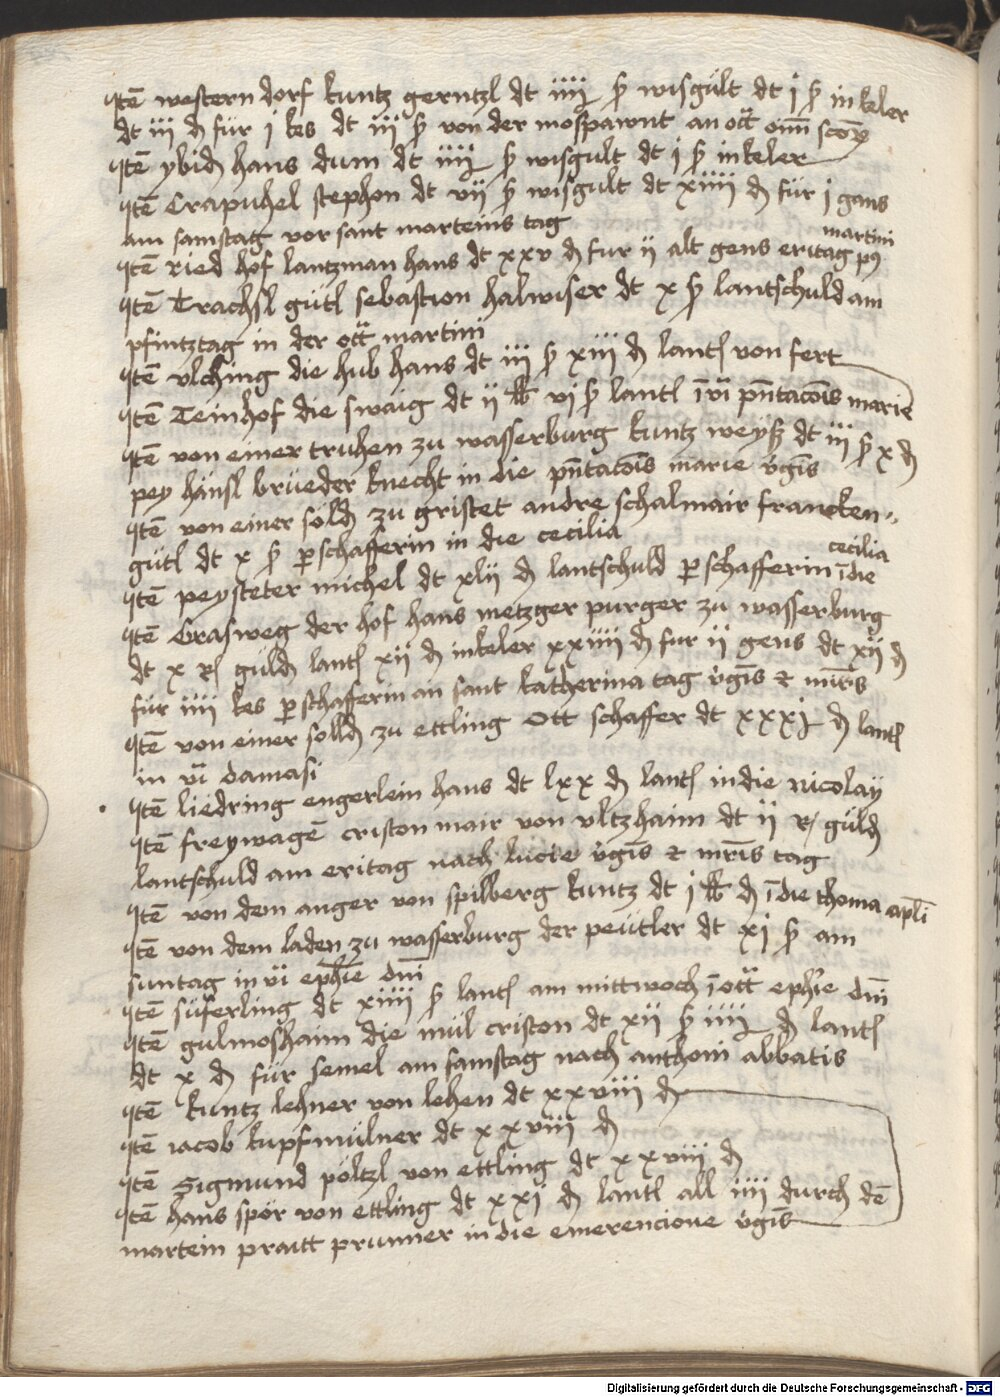 Itē westerndorf kuntz gerntzl dt iiii ß wisgült dt j ß inkeler
dt iii ₰ für j kes dt iii ß von der mospawnt an oct̄ om̄ scō
Itē ybid̄ hans dum dt iiii ß wisgult dt j ß inkeler
Itē Crapuhel stephon dt vii ß wisgult dt xiiii ₰ für j gans
am samstag vor sant marteins tag
Itē ried hof lantzman hans dt xxv ₰ fur ii alt gens eritag p9 martini
Itē Trachsl gütl sebastion halwiser dt x ß lantschuld am
pfintztag in der oct̄ martini
Itē vlching die hub hans dt iii ß xiii ₰ lantl von fert
Itē Teinhof die swaig dt ii lb vj ß lantl ī vī pn̄tacōis marie
Itē von einer truhen zu wasserburg kuntz weyß dt iii ß x ₰
pey hänsl brüeder knecht in die pn̄tacōis marie v̄gīs
Itē von einer söld̄ zu gristet andre schalmair francken
gütl dt x ß p schafferin in die cecilia
Itē peysteter michel dt xlii ₰ lantschuld p schafferin ī die cecilia
Itē Grasweg der hof hans metzger purger zu wasserburg
dt x R güld̄ lantl xii ₰ inkeler xxiiii ₰ fur ii gens dt xii ₰
für iiii kes p schafferin an sant katherina tag v̄gīs et mr̄īs
Itē von einer solld̄ zu ettling Ott schaffer dt xxxj ₰ lantl
in vī damasi
Itē liedring engerlein hans dt lxx ₰ lantl in die nicolay
Itē freywagē criston mair von vltzhaim dt ii R güld̄
lantschuld am eritag nach lucie v̄gīs et mr̄īs tag
Itē von dem anger von spilberg kuntz dt j lb ₰ ī die thoma apl̄i
Itē von dem laden zu wasserburg der peütler dt xj ß am
suntag in vī eph̄ie dn̄i
Itē süferling dt xiiii ß lantl am mittwoch ī oct̄ eph̄ie dn̄i
Itē gulmoshaim die mül criston dt xii ß iiii ₰ lantl
dt x ₰ für semel am samstag nach anthoni abbatis
Itē kuntz lehner von lehen dt xxviii ₰
Itē iacob kupfmülner dt xxviii ₰
Itē Sigmund pöltzl von ettling dt xxviii ₰
Itē hans spör von ettling dt xxj ₰ lantl all iiii durch dē
martein praitt prunner in die emerencione v̄gīs
Digitalisierung gefördert durch die Deutsche Forschungsgemeinschaft - DFG